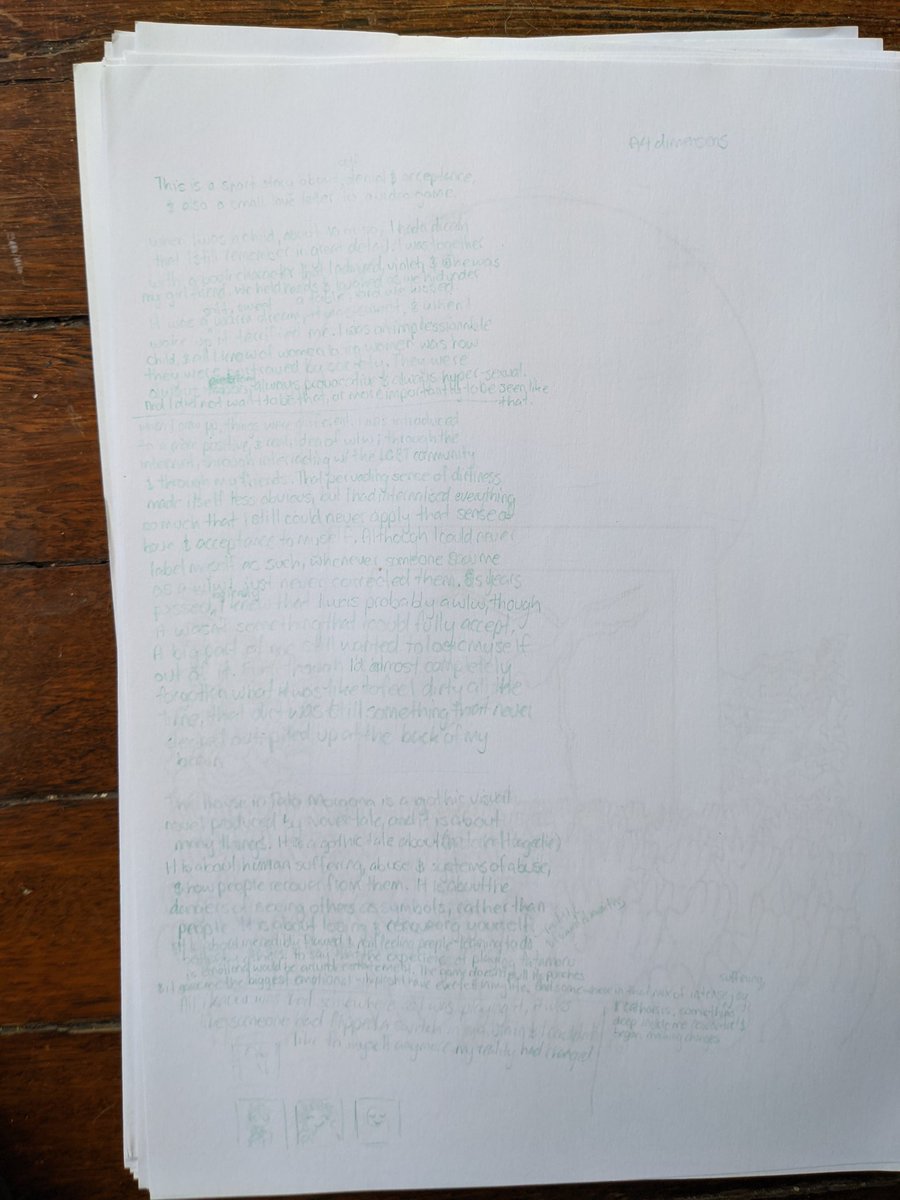 A4 dimensions
self
This is a short story about, denial & acceptance,
& also a small love letter to a video game.
When I was a child, about 10 or so, I had a dream
that I still remember in great detail. I was together
with a book character that I admired, violet, & she was
my girlfriend. We held hands & laughed as we hid under
a table, and we kissed
It was a dream, it was sweet, & when I
woke up it terrified me. I was an impressionable
child, & all I knew of women loving women was how
they were portrayed by society. They were
always always provocative & always hyper-sexual.
And I did not want to be that, or more importantly to be seen like
that.
When I grew up, things were different. I was introduced
to a more positive, & real idea of wlw; through the
internet, through interacting w/ the LGBT community
& through my friends. That pervading sense of dirtiness
made itself less obvious, but I had internalised everything
so much that I still could never apply that sense of
love & acceptance to myself. Although I could never
label myself as such, whenever someone assume
as a wlw I just never corrected them. As years
passed, I knew that I was probably a wlw, though
it wasn't something that I could fully accept.
A big part of me still wanted to lock myself
out of it. Even though I'd almost completely
forgotten what it was like to feel dirty all the
time, that dirt was still something that never
piled up at the back of my
brain
The House in Fata Morgana is a gothic visual
novel produced by Novectacle, and it is about
many things. It is a gothic tale about
It is about human suffering, abuse & systems of abuse,
& how people recover from them. It is about the
dangers of seeing others as symbols, rather than
people. It is about losing & reclaiming yourself.
incredibly flawed & real feeling people learning to do
To say that the experience of playing fatamoru
is emotional would be an understatement. The game doesn't pull its punches
& it gave me the biggest emotional I have ever felt in my life. And somewhere in that mix of intense joy
suffering
& catharsis, something
deep inside me &
began making changes
All I knew was that somewhere as I was playing it, it was
like someone had flipped a switch in my brain & I couldn't
lie to myself anymore. my reality had changed